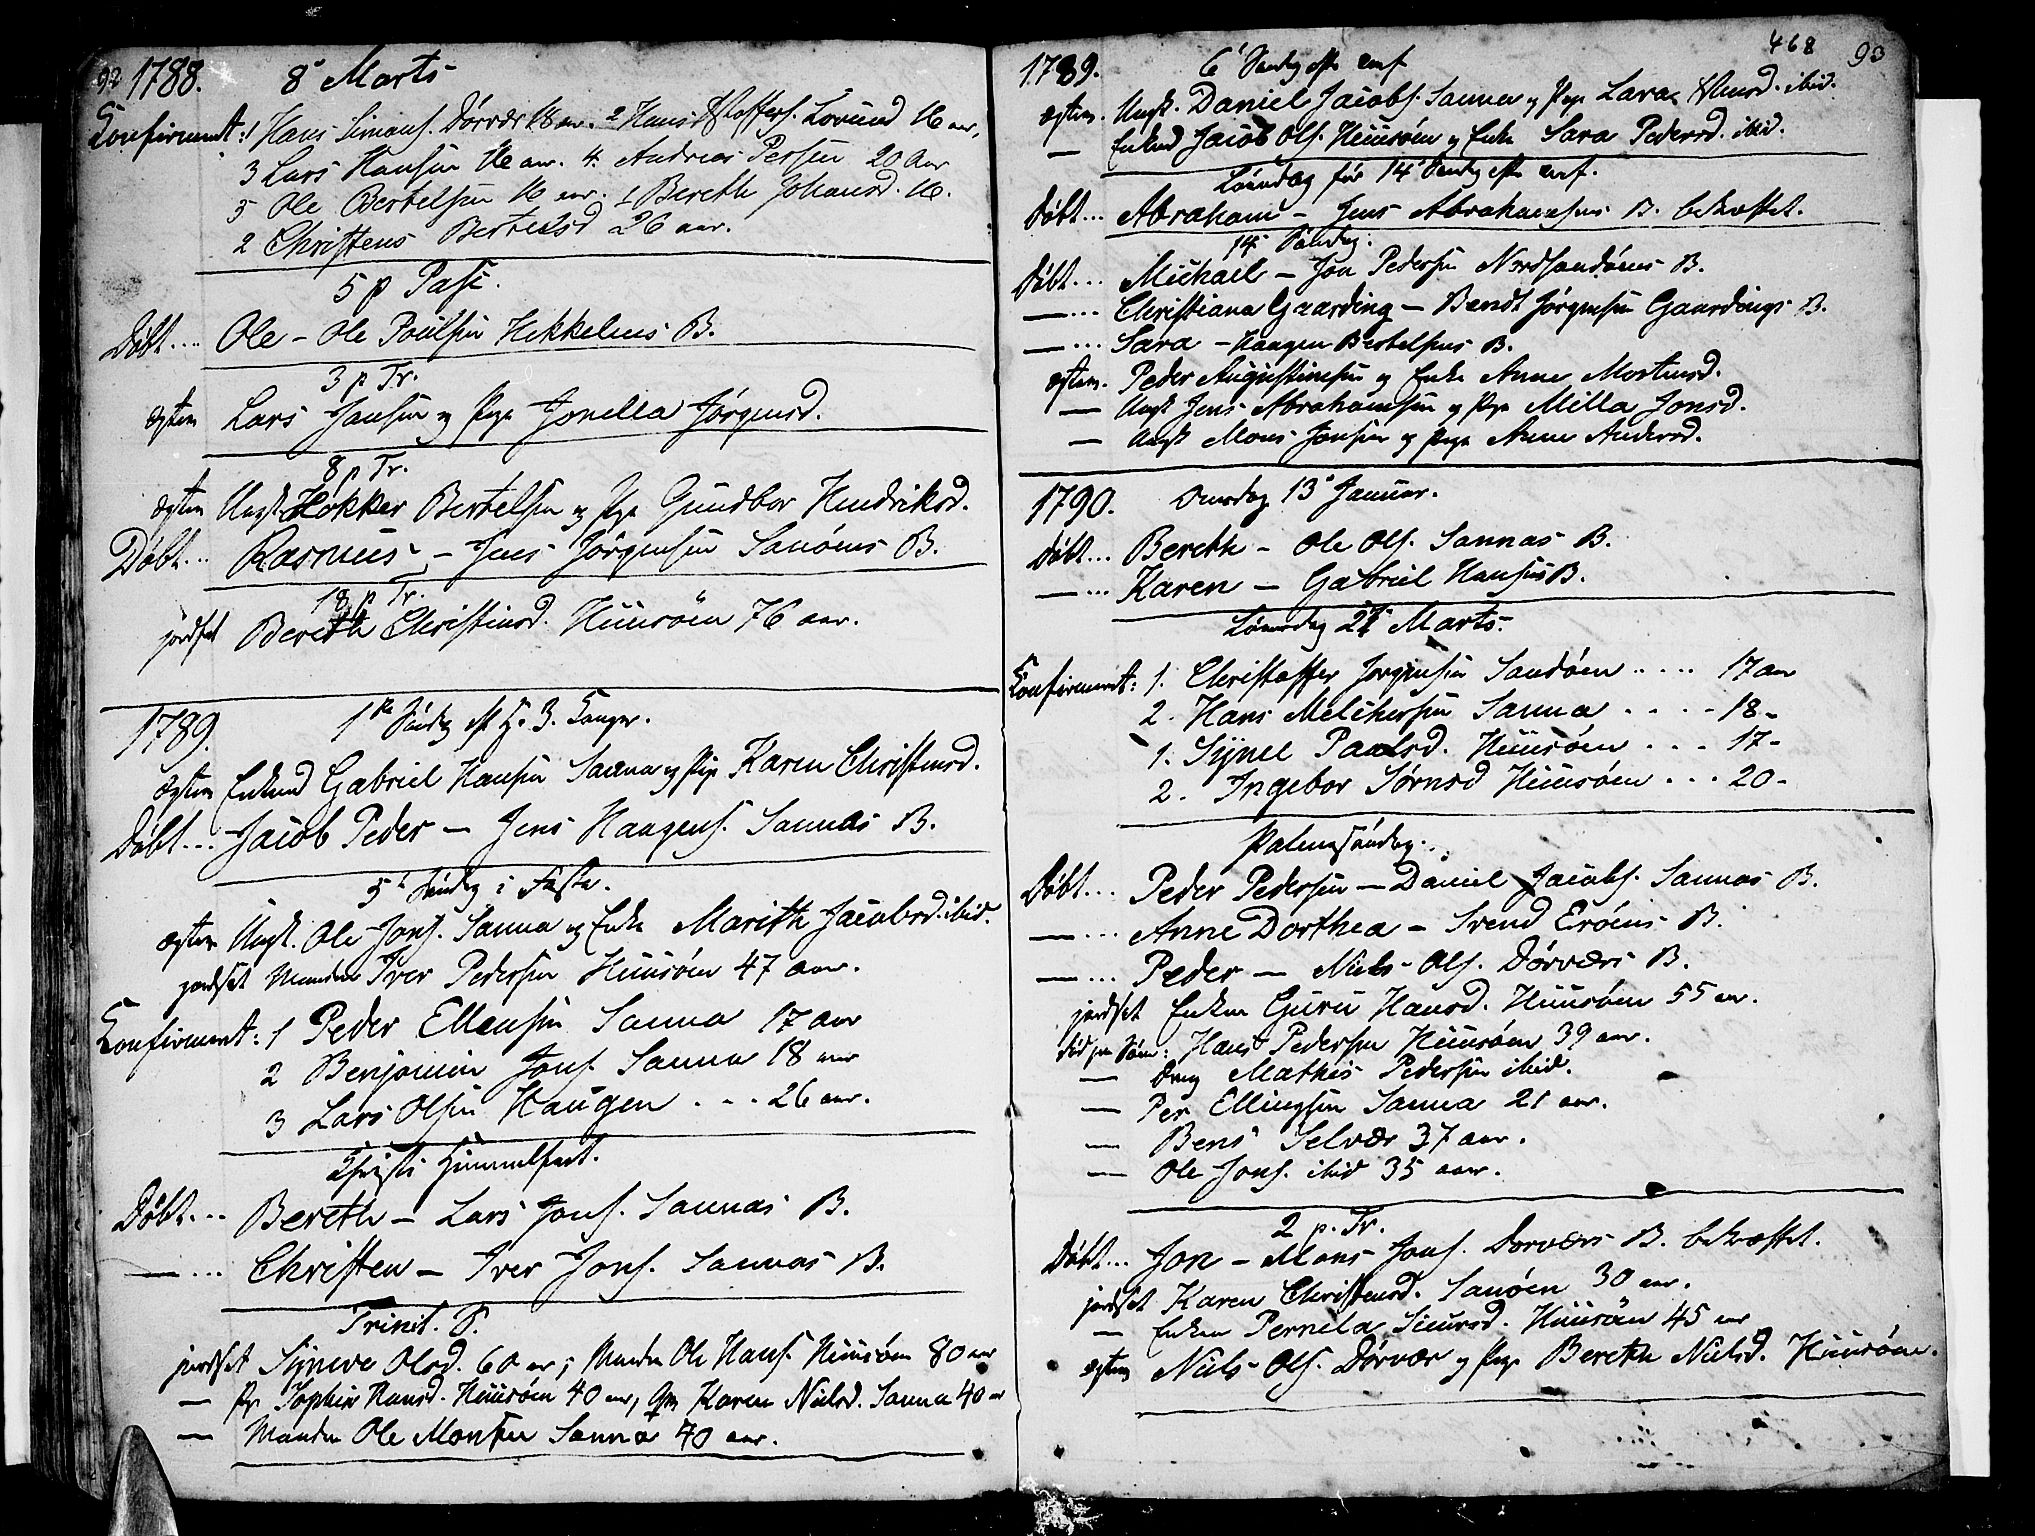 92 1788. 8de Marts
Confirmert: 1 Hans Simons. Dørvær 18 aar. 2 Hans Kstoffers. Lovund 16 aar,
3 Lars Hansen 16 aar. 4. Andreas Persen 20 Aar
5 Ole Bertelsen 16 aar. 1 Bereth Johansd. 16.
2 Christens Bertelsd 26 aar.
5 p Pasc.
Døbt... Ole - Ole Poulsen Hekkelens B.
3 p Tr.
ægtev Lars Jansen og Pige Jonella Jørgensd.
8 p Tr.
ægtev Ungk. Hokker Bertelsen og Pige Gundbor Hendriksd.
Døbt... Rasmus - Jens Jörgensen Sanøens B.
18 p Tr.
jordset Bereth Christensd. Huusöen 76 aar.
1789. 1ste Søndag eft H. 3. Konger.
ægtev Enkmd Gabriel Hansen Sanna og Pige Karen Christensd.
Døbt... Jacob Peder - Jens Haagens. Sannas B.
5te Søndag i Faste.
ægtev Ungk. Ole Jons. Sanna og Enke Marith Jacobsd. ibid.
jordset Manden Iver Pedersen Huusøen 47 aar.
Confirmert: 1 Peder Ellensen Sanna 17 aar
2 Benjamin Jons. Sanna 18 aar
3 Lars Olsen Haugen . . . 26 aar.
Christi Himmelfart.
Døbt... Bereth - Lars Jons. Sannas B.
— ... Christen - Iver Jons. Sannas B.
Trinit. S.
jordset Synnve Olsd. 60 aar; Manden Ole Hans. Huusøen 80 aar
— Pr. Sophia Hansd. Huusöen 40 aar, Qm Karen Nielsd. Sanna 40 a
— Manden Ole Monsen Sanna 70 aar.
468 93
1789. 6te Søndag efter Trinf
ægtev. Ungk. Daniel Jacobs. Sanna og Pige Lara ibid.
— Enkmd Jacob Ols. Huusøen og Enke Sara Pedersd. ibid.
Løverdag før 14de Søndag efter
Døbt... Abraham - Jens Abrahamsens B. bekræftet.
14de Søndag.
Døbt... Michael - Jon Pedersen Nordsandøens B.
— ... Christiana Gaarding - Bendt Jørgensen Gaardings B.
— ... Sara - Haagen Bertelsens B.
ægtev. Peder Augustinesen og Enke Anne Mortensd.
— Ungk Jens Abrahamsen og Pige Milla Jonsd.
— Ungk Mons Jonsen og Pige Anne Andersd.
1790. Onsdag 13de Januar.
Døbt... Bereth - Ole Ols. Sannas B.
— ... Karen - Gabriel Hansens B.
Lønsdag 27 Marts.
Confirmert: 1. Christoffer Jørgensen Sandøen . . . . . 17 aar
2. Hans Melchersen Sanna . . . . - 18 -
1. Synel Paalsd. Huusøen . . . 17 -
2. Ingebor Sørnsd Huusøen . . . 20 -
Palmesøndag.
Døbt... Peder Pedersen - Daniel Jacobs. Sannas B.
— ... Anne Dorthea - Svend Erøens B.
— ... Peder - Niels Ols. Dørværs B.
jordset Enken Guru Hansd. Huusøen 55 aar.
død paa Søen: Hans Pedersen Huusøen 39 aar.
— Dreng Mathis Pedersen ibid.
— Per Ellingsen Sanna 21 aar.
— Bens Selvær 37 aar.
— Ole Jons. ibid 35 aar.
2 p. Tr.
Døbt... Jon - Mons Jons. Dørværs B. bekræftet.
jordset Karen Christensd. Sanøen 30 aar.
— Enken Pernela Siursd. Huusøen 45 aar
ægtev Niels Ols. Dørvær og Pige Bereth Nielsd. Huusøen.